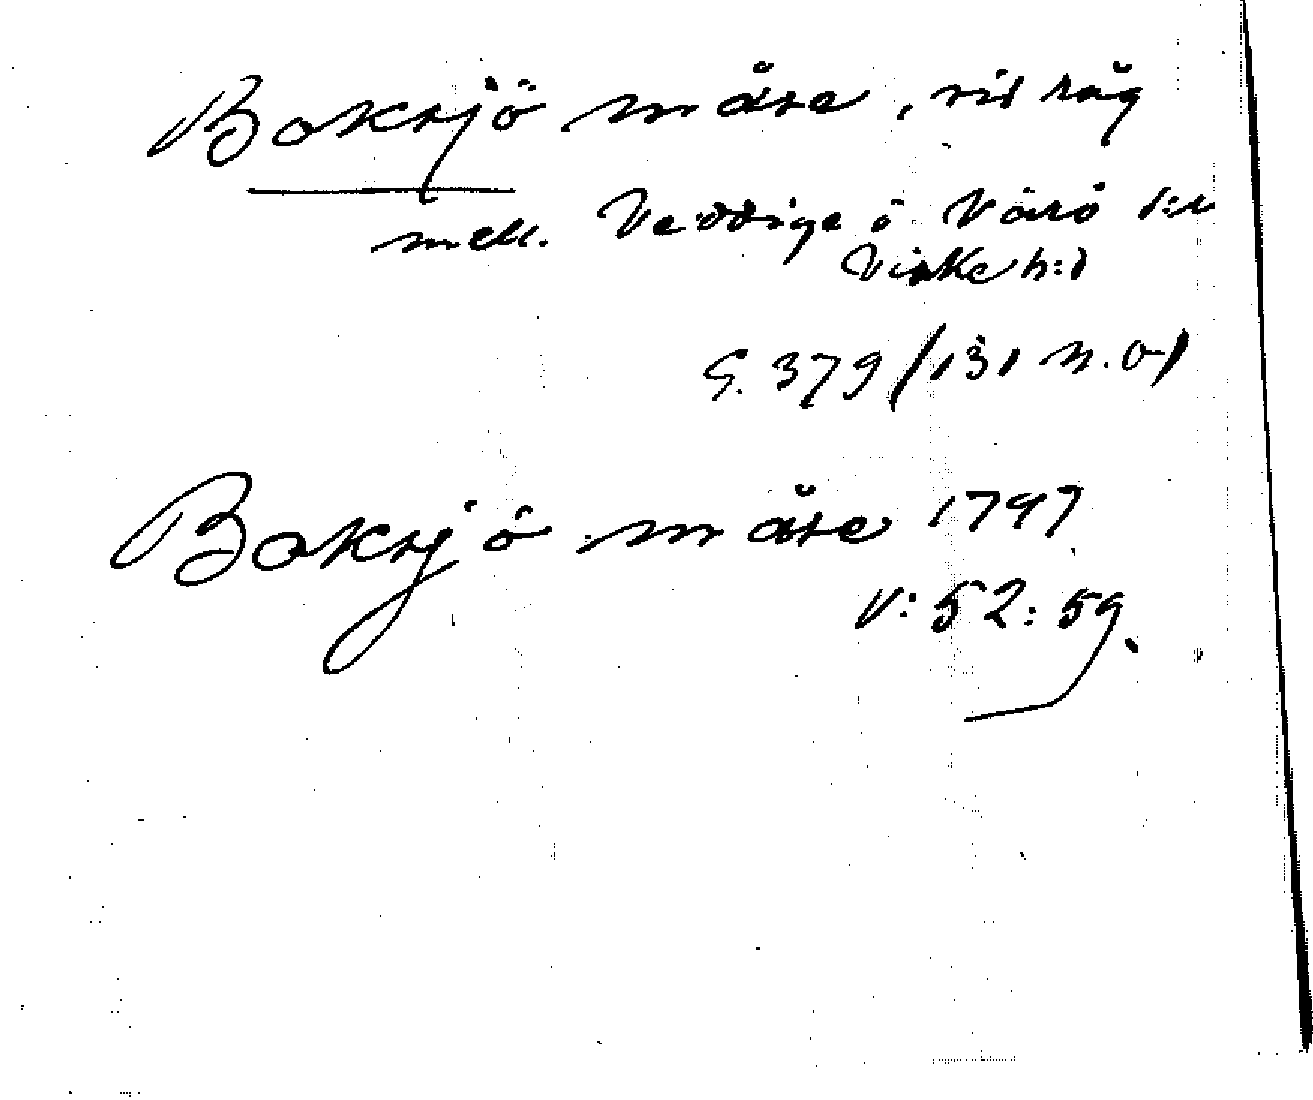 Boksjö måse, vid råg
mell. Veddige o Värö s:r
Viske h:d
G. 379 (131 n.o)
Boksjö måse 1797
V: 52: 59.